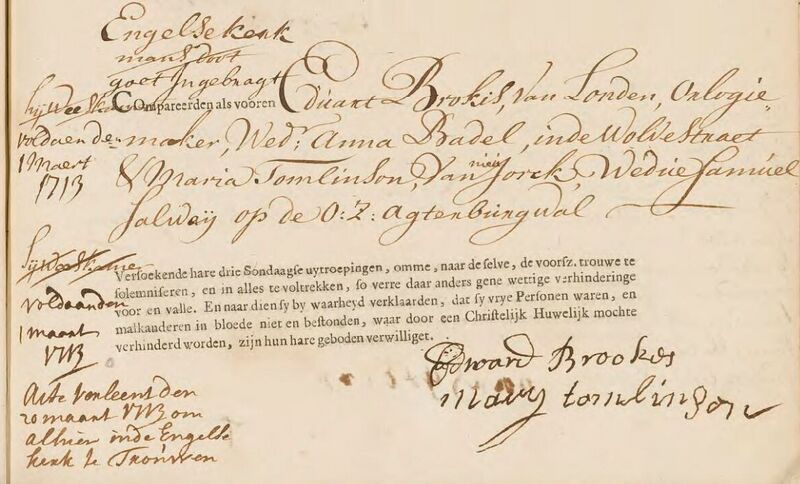 Engelse kerk
mans doot
goet Ingebragt
hij Weesk
voldaen den
1 Maert
1713
Compareerden als vooren Eduart Brokis, van Londen, Orlogie-
maker, Wedr: Anna Badel, inde Woldestraet
& Maria Tomlinson, van nieuw Jorck, Wedue Samuel
Salwaij op de O: Z: Agtenburgwal
Sij Weeskamer
voldaanden
1 maart
1713
Versoekende hare drie Sondaagse uytroepingen, omme, naar de selve, de voorsz. trouwe te
solemniseren, en in alles te voltrekken, so verre daar anders gene wettige verhinderinge
voor en valle. En naar dien sy by waarheyd verklaarden, dat sy vrye Personen waren, en
malkanderen in bloede niet en bestonden, waar door een Christelijk Huwelijk mochte
verhinderd worden, zijn hun hare geboden verwilliget.
Edward Brookes
Mary tomlinson
Acte verleent den
20 maart 1713 om
alhier inde Engelse
kerk te Trouwen